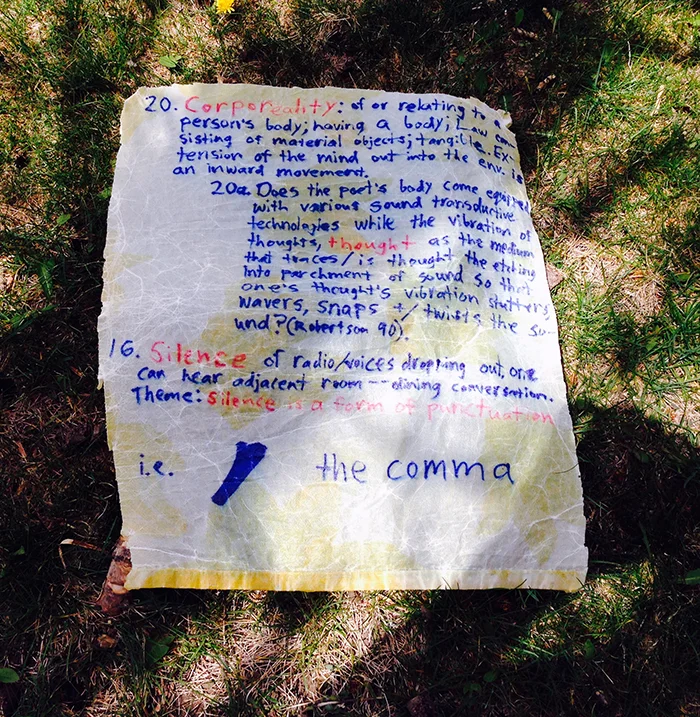 20. Corporeality: of or relating to a
person's body; having a body; Law con-
sisting of material objects; tangible. Ex-
tension of the mind out into the env. is
an inward movement.
20a. Does the poet's body come equipped
with various sound transductive
technologies while the vibration of
thoughts, thought as the medium
that traces/is thought the etching
into parchment of sound so that
one's thought's vibration stutters,
wavers, snaps +/ twists the so-
und? (Robertson 90).
16. Silence of radio/voices dropping out, one
can hear adjacent room -- dining conversation.
Theme: Silence is a form of punctuation
i.e. , the comma